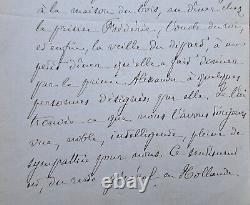 à la maison du bois, au dîner chez
le prince Frédéric, l'oncle du roi,
et enfin, la veille du départ, à un
petit dîner qu'elle a fait donner
par le prince Alexandre à quelques
personnes désignées par elle. Je l'ai
trouvée ce que nous l'avons toujours
vue, noble, intelligente, pleine de
sympathie pour nous. Ce sentiment
est, du reste, général en Hollande